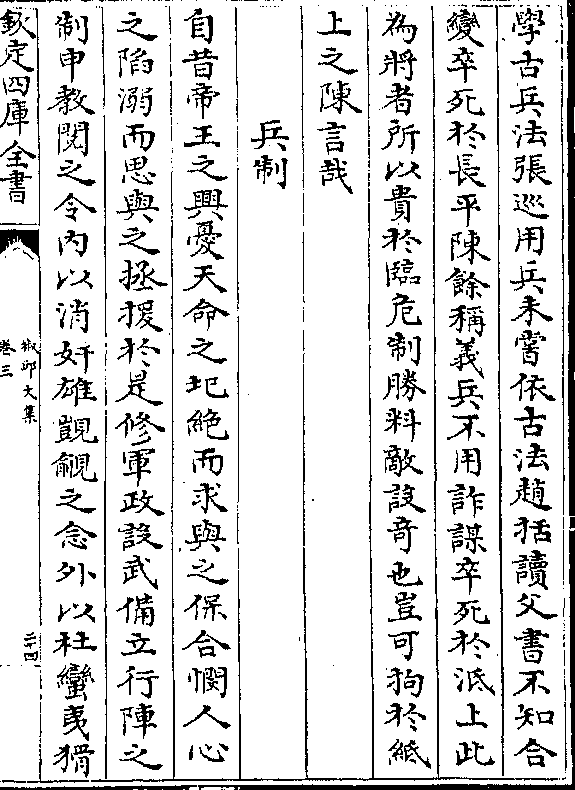 學古兵法張巡用兵未嘗依古法趙括讀父書不知合
變卒死於長平陳餘稱義兵不用詐謀卒死於泜上此
為將者所以貴於臨危制勝料敵設竒也豈可狥於紙
上之陳言哉
兵制
自昔帝王之興憂天命之圯絶而求與之保合憫人心
之陷溺而思與之拯援於是修軍政設武備立行陣之
制申教閱之令內以消奸雄覬覦之念外以杜蠻夷猾
欽定四庫全書
椒邱文集
卷三
二十四